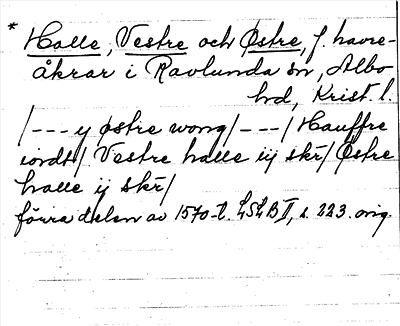 * Halle, Vestre och Østre, f. havre-
åkrar i Ravlunda sn, Albo
hd, Krist. l.
/--- y østre wong/---/ Hauffre
iordt/ Vestre halle iij skr/ Østre
halle ij skr/
förra delen av 1570-t. LSLB II, s. 223. orig.